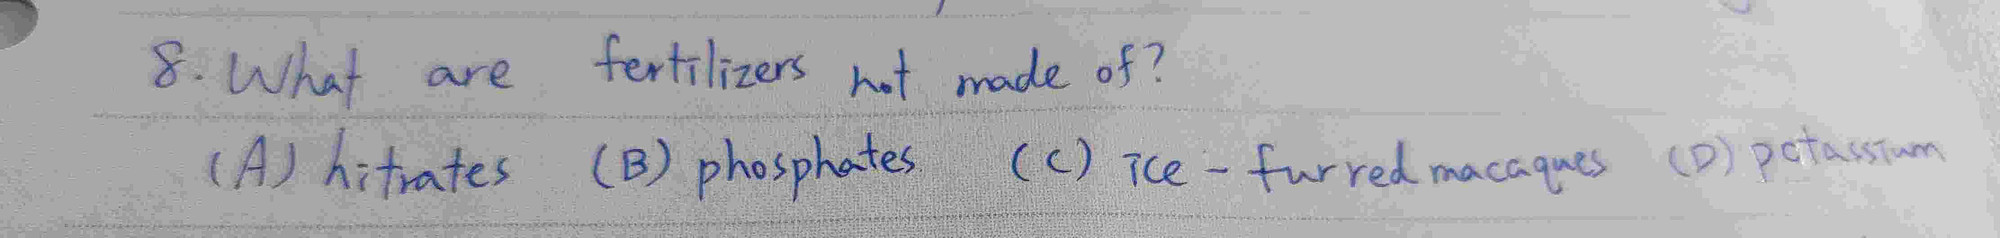 8. What are fertilizers not made of?
(A) nitrates (B) phosphates (C) ice-furred macaques (D) potassium